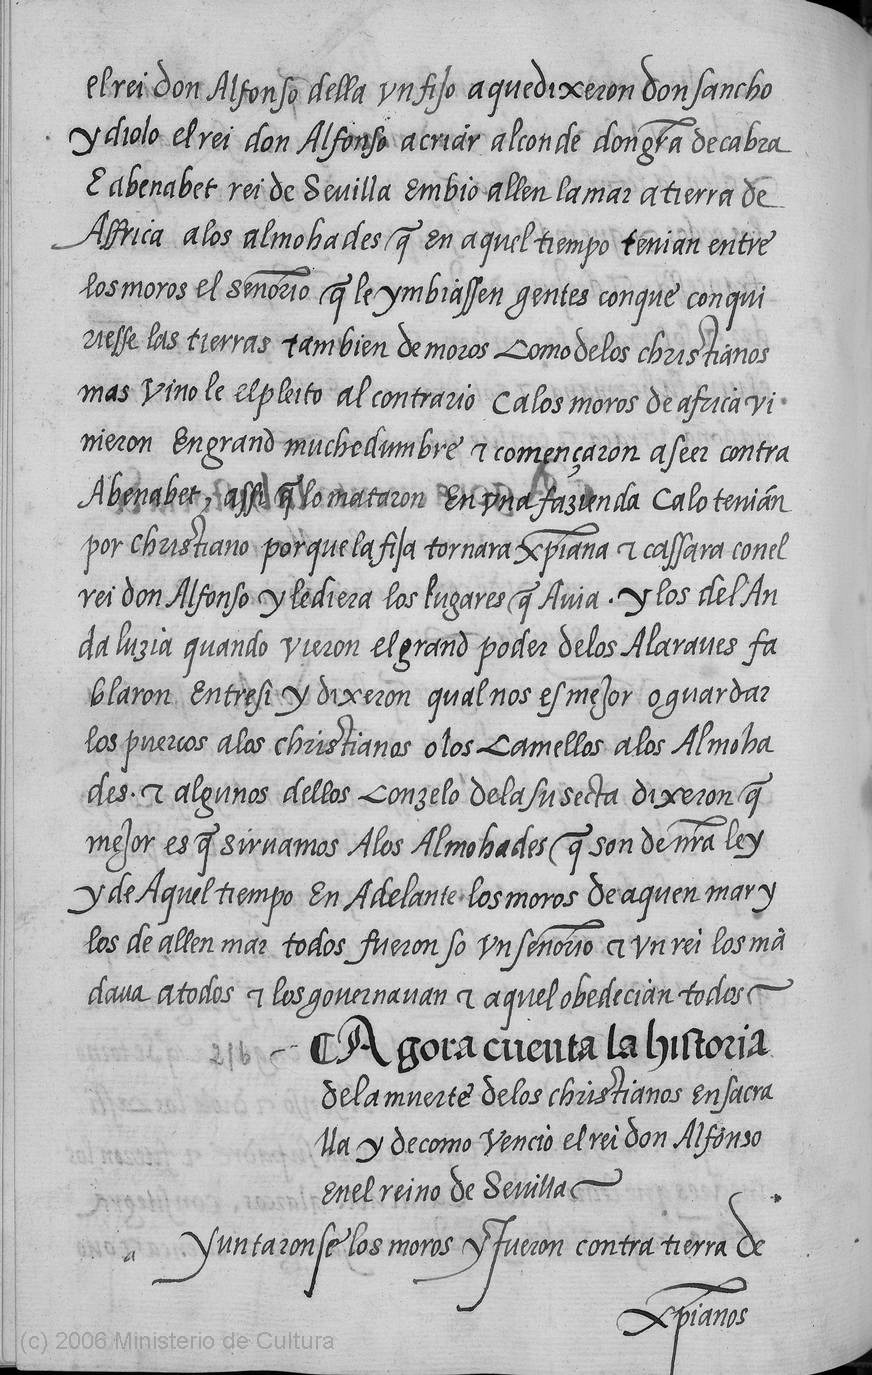 el rei don Alfonso della vn fijo a que dixeron don sancho
y diolo el rei don Alfonso a criár al conde don gr̃a de cabra
E abenabet rei de Sevilla Embio allen la mar a tierra de
Affrica a los almohades q̃ En aquel tiempo tenian entre
los moros el señorio q̃ le ymbiassen gentes con que conqui
riesse las tierras tambien de moros Como de los christianos
mas vino le el pleito al contrario Ca los moros de africa vi
nieron En grand muchedumbre ⁊ començaron a seer contra
Abenabet, assi q̃ lo mataron En vna fazienda Ca lo tenián
por christiano por que la fija tornara xp̃iana ⁊ cassara con el
rei don Alfonso y le diera los lugares q̃ Auia . y los del An
daluzia quando vieron el grand poder de los Alaraues fa
blaron Entresi y dixeron qual nos es mejor o guardar
los puercos a los christianos o los Camellos a los Almoha
des. ⁊ algunos dellos Con zelo de la su secta dixeron q̃
mejor es q̃ siruamos A los Almohades q̃ son de nr̃a ley
y de Aquel tiempo En Adelante los moros de aquen mar y
los de allen mar todos fueron so vn señorio ⁊ vn rei los mã
daua a todos ⁊ los governauan ⁊ aquel obedecian todos
216 ¶ Agora cuenta la historia
de la muerte de los christianos en sacra
lla y de como vencio el rei don Alfonso
en el reino de Sevilla
a Yuntaronse los moros y fueron contra tierra de
xp̃ianos
(c) 2006 Ministerio de Cultura